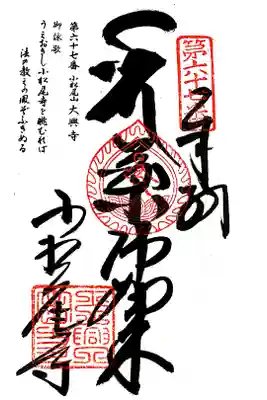 第六十七番
奉納
薬師如来
小松尾寺
第六十七番 小松尾山 大興寺
御詠歌
うえおきし小松尾寺を眺むれば
法の教えの風ぞふきぬる